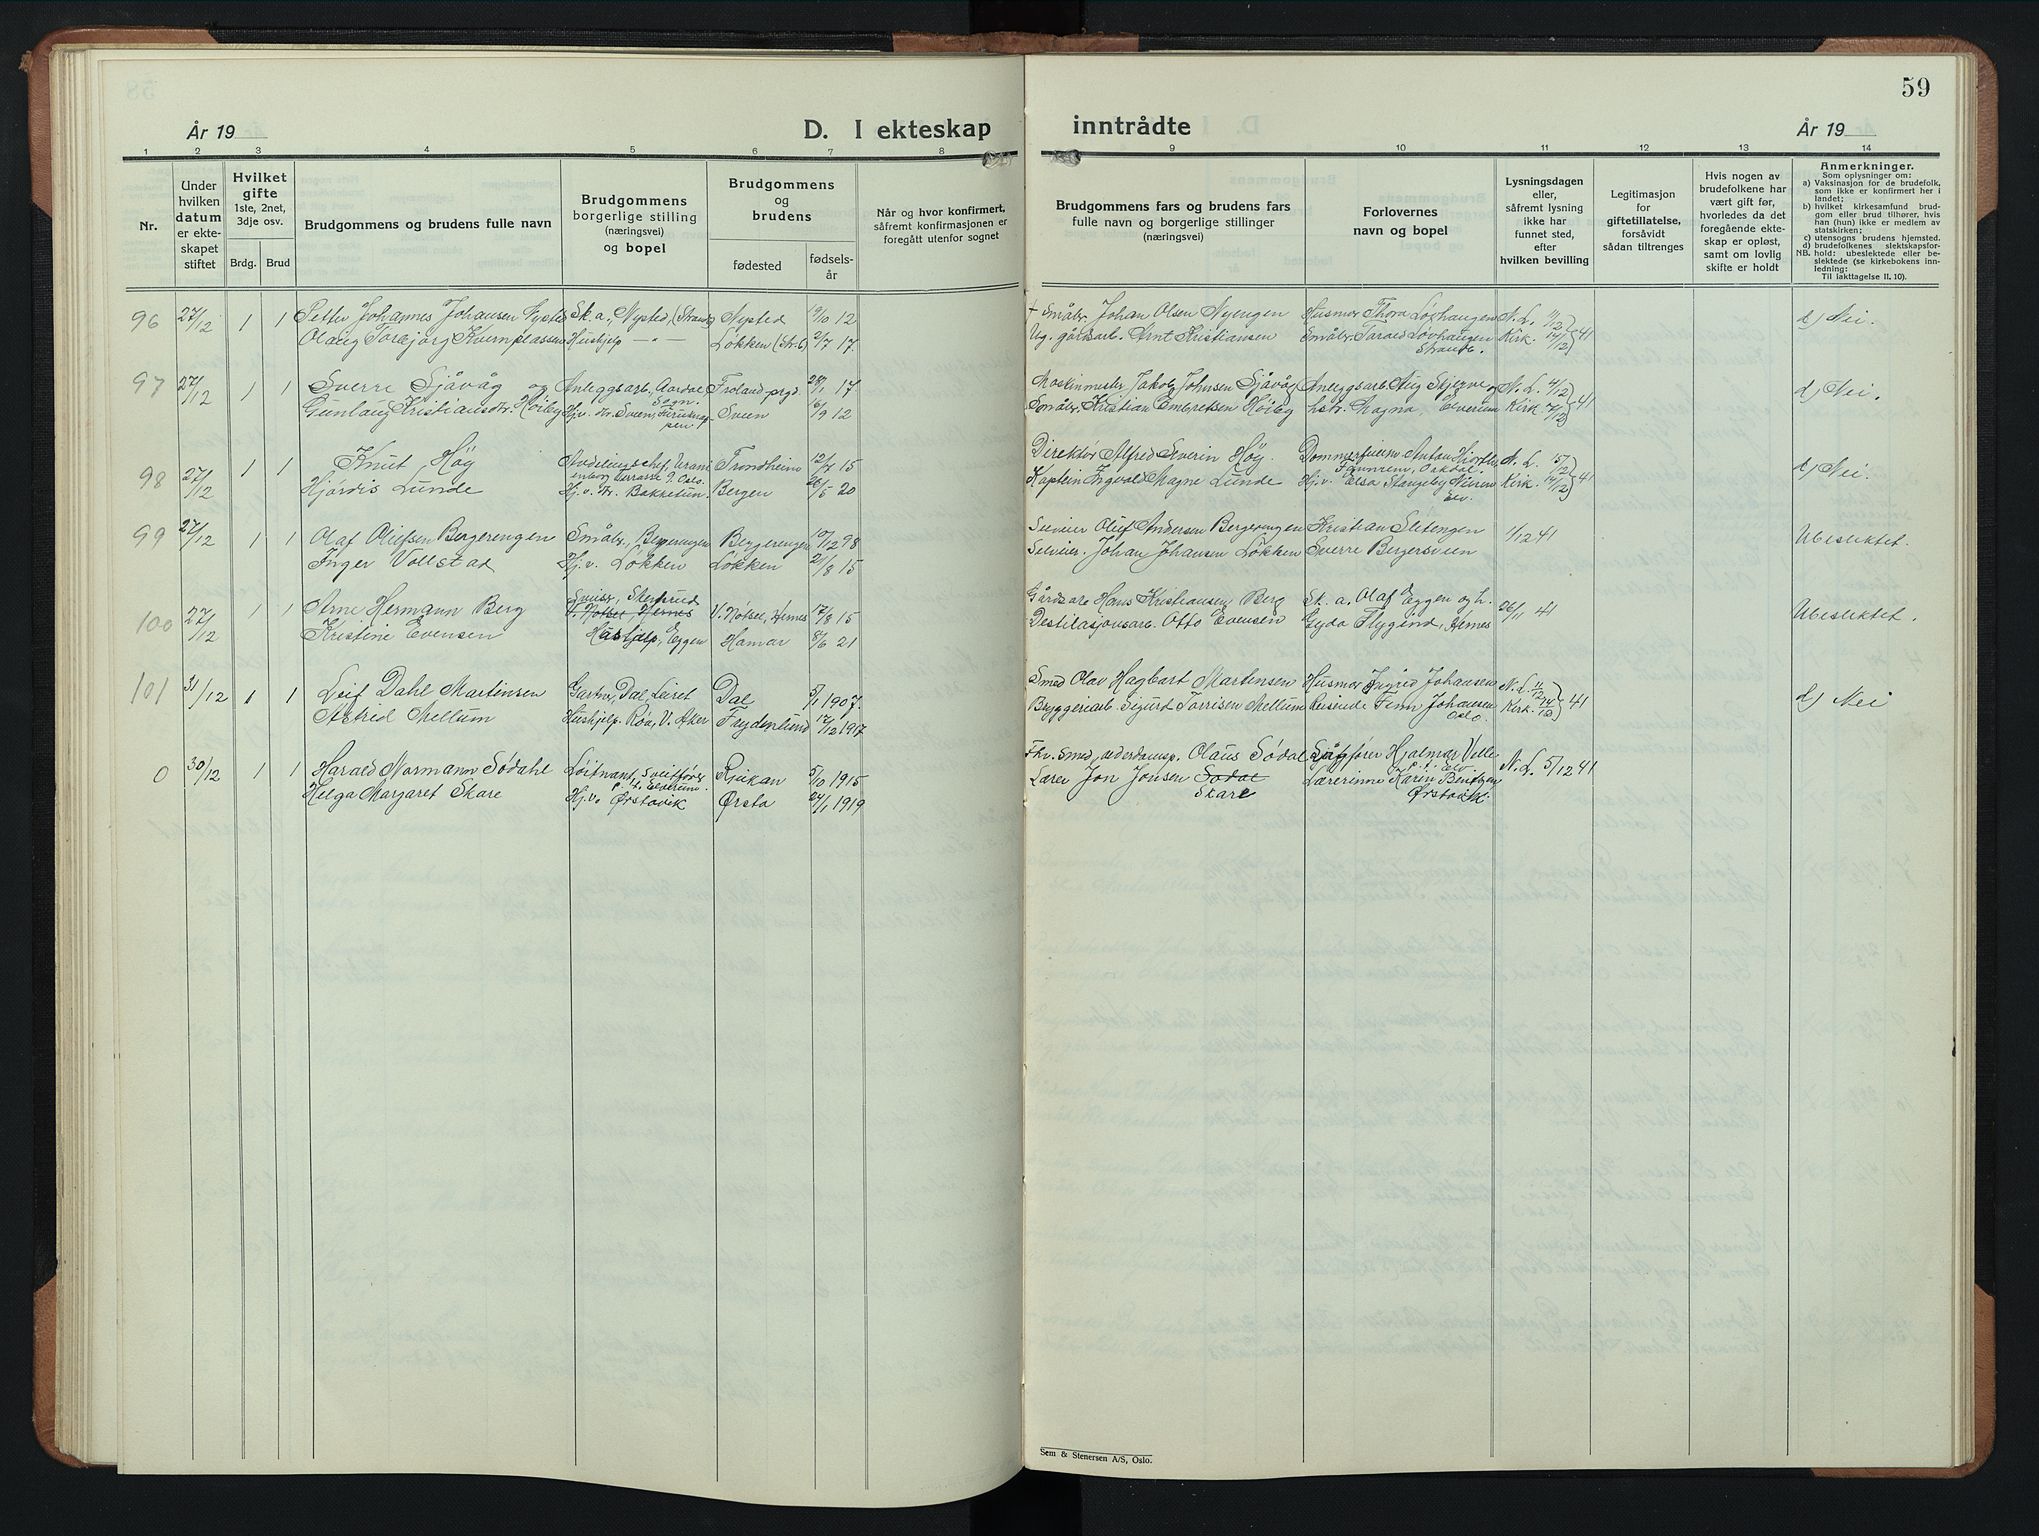 59
År 19
D. I ekteskap
inntrådte
År 19
1 2 3 4 5 6 7 8 9 10 11 12 13 14
Nr.
Under
hvilken
datum
er ekte-
skapet
stiftet
Hvilket
gifte
1ste, 2net,
3dje osv.
Brdg. Brud
Brudgommens og brudens fulle navn
Brudgommens
borgerlige stilling
(næringsvei)
og bopel
Brudgommens
og
brudens
fødested
fødsels-
år
Når og hvor konfirmert,
såfremt konfirmasjonen er
foregått utenfor sognet
Brudgommens fars og brudens fars
fulle navn og borgerlige stillinger
(næringsvei)
Forlovernes
navn og bopel
Lysningsdagen
eller,
såfremt lysning
ikke har
funnet sted,
efter
hvilken bevilling
Legitimasjon
for
giftetillatelse,
forsåvidt
sådan tiltrenges
Hvis nogen av
brudefolkene har
vært gift før,
hvorledes da det
foregående ekte-
skap er opløst,
samt om lovlig
skifte er holdt
Anmerkninger.
Som oplysninger om:
a) Vaksinasjon for de brudefolk,
som ikke er konfirmert her i
landet;
b) hvilket kirkesamfund brud-
gom eller brud tilhører, hvis
han (hun) ikke er medlem av
statskirken;
c) utensogns brudens hjemsted.
d) brudefolkenes slektskapsfor-
NB. hold: ubeslektede eller be-
slektede (se kirkebokens inn-
ledning:
Til iakttagelse II. 10).
96 27/12 1 1 Petter Johannes Johansen Nysted Sk.a., Nysted, (Strandb) Nysted 19/10 12 + Småbr. Johan Olsen Nyengen Husmor Thora Løkhaugen N.L. 11/12 41 d) Nei.
Olaug Torbjørg Kvernplassen Hushjelp — " — Løkken (Str.b) 2/7 17. Ug. gårdsarb. Arnt Kristiansen Småbr. Tarald Løvhaugen Kirk. 14/12
Strandb.
97 27/12 1 1 Sverre Sjåvåg og Anleggsarb. Aardal Froland prgd. 28/1 17 Maskinmester Jakob Johnsen Sjåvåg Anleggsarb. Stig Skjerve og N.L. 4/12 41 d) Nei.
Sogn.
Gunlaug Kristiansdtr. Høiby Hj.v. dtr. Sveen, Furuknap- Sveen 16/9 12 Småbr. Kristian Embretsen Høiby hstr. Magna, Elverum Kirk 7/12
pen
98 27/12 1 1 Knut Høg Avdelingschef, Urani- Trondheim 12/7 15 Direktør Alfred Severin Høg Dommerfullm. Anton Hiorth N.L. 5/12 41 d) Nei.
enborg Terrasse 9. Oslo. Fannrem, Orkdal
Hjørdis Lunde Hj.v. dtr. Bakketun. Bergen 26/5 20 Kaptein Ingvald Magne Lunde Hj.v. Elsa Stangeby Nielsen Kirk. 14/12
Elv.
99 27/12 1 1 Olaf Olufsen Bergerengen Småbr., Bergerengen Bergerengen 10/12 98 Selveier Oluf Andersen Bergerengen Kristian Slitengen 1/12 41 Ubeslektet.
Inger Vollstad Hj.v. Løkken Løkken 21/8 15 Selveier. Johan Johansen Løkken Sverre Bergersveen
100 27/12 1 1 Arne Hermann Berg Sveiser, Skjefstad V. Nøtsel, Hernes 17/8 15 Gårdsarb. Hans Kristiansen Berg Sk. a. Olaf Eggen og h. 26/11 41 Ubeslektet.
V. Nøtsel Hernes
Kristine Evensen Hushjelp, Eggen Hamar 8/6 21 Destilasjonsarb. Otto Evensen Gyda Flygind, Hernes
101 31/12 1 1 Leif Dahl Martinsen Gartner, Dal Leiret Dal 5/1 1907. Smed Olav Hagbart Martinsen Husmor Ingrid Johansen N.L. 11/12 41 d) Nei
Astrid Mellum Hushjelp. Røa, V. Aker Frydenlund 17/12 1917 Bryggeriarb. Sigurd Torrisen Mellum Reisende Finn Johansen Kirk. 14/12
Oslo.
0 30/12 1 1 Harald Normann Sødahl Løitnant, Sveitfører Rjukan 5/10 1915 Fhv. Smed, alderdomsp. Olaus Sødal Sjåfør Hjalmar Velle N.L. 5/12 41
p.t. Elverum p.t. Elv
Helga Margaret Skare Hj.v. Ørstavik Ørsta 24/1 1919 Lærer Jon Jonsen Sødal Lærerinne Karin Bentzen
Skare Ørstavik.
Sem & Stenersen A/S, Oslo.